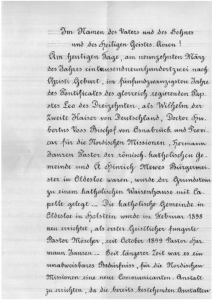 Im Namen des Vaters und des Sohnes
und des Heiligen Geistes. Amen!
Am heutigen Tage, am neunzehnten März
des Jahres eintausendneunhundertzwei nach
Christi Geburt, im fünfundzwanzigsten Jahre
des Pontificates des glorreich regierenden Pap-
stes Leo des Dreizehnten, als Wilhelm der
Zweite Kaiser von Deutschland, Doctor Hu-
bertus Voss Bischof von Osnabrück und Provi-
car für die Nordischen Missionen, Hermann
Jansen Pastor der römisch-katholischen Ge-
meinde und A. Hinrich Mewes Bürgermei-
ster in Oldesloe waren, wurde der Grundstein
zu einem katholischen Waisenhause mit Ca-
pelle gelegt. — Die katholische Gemeinde in
Oldesloe in Holstein wurde im Februar 1898
neu errichtet, als erster Geistlicher fungirte
Pastor seit October 1899 Pastor Her-
mann Jansen. — Seit längerer Zeit war es ein
unabweisbares Bedürfniss, für die Nordischen
Missionen eine neue Communicanten-Anstalt
zu errichten, da die bereits bestehenden Anstalten